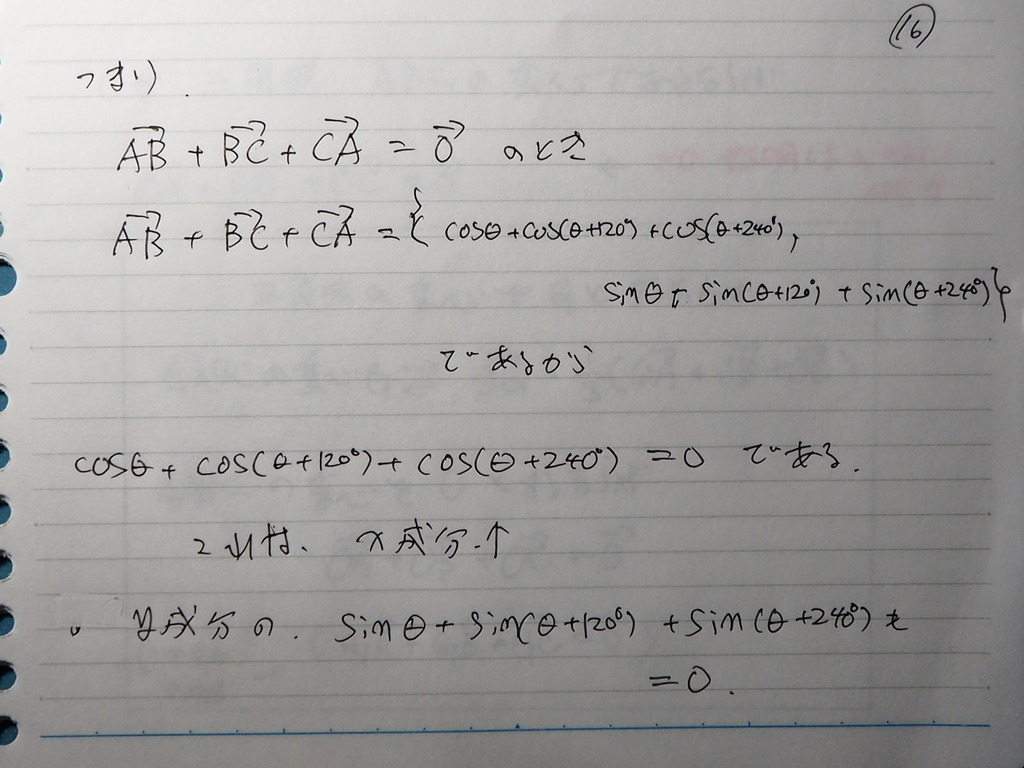 (16)
つまり.
AB→ + BC→ + CA→ = 0→ のとき
AB→ + BC→ + CA→ = { cosθ + cos(θ+120°) + cos(θ+240°),
sinθ + sin(θ+120°) + sin(θ+240°) }
であるから
cosθ + cos(θ+120°) + cos(θ+240°) = 0 である.
これは、x成分.↑
y成分の. sinθ + sin(θ+120°) + sin(θ+240°) も
= 0.